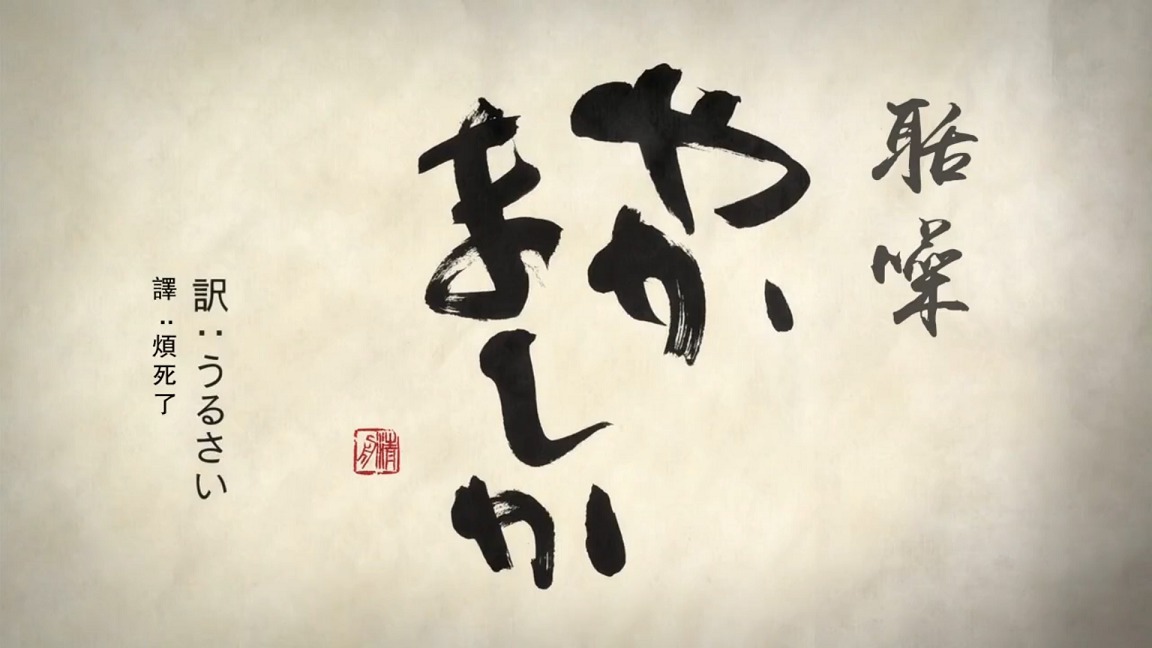 聒噪
やか
ましか
訳：うるさい
譯：煩死了